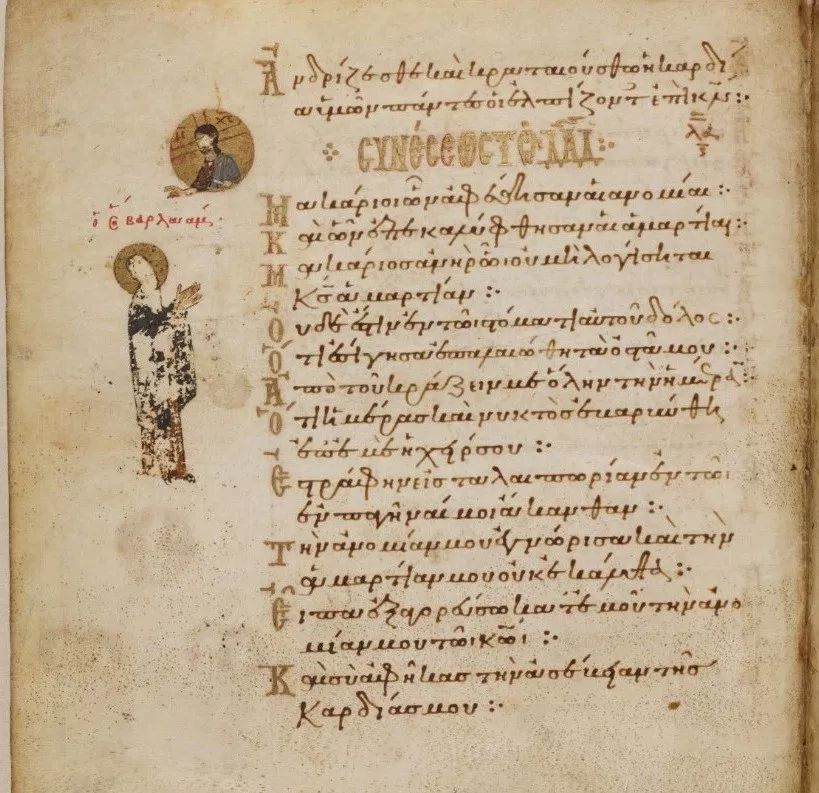 Ἀνδρίζεσθε καὶ κραταιούσθω ἡ καρδί
α ὑμῶν πάντες οἱ ἐλπίζοντ ἐπὶ κν̅ :·
λα
ΙC ΧC
⁘ CΥΝΕCΕΩC ΤΩ ΔΑΔ :·
Μακάριοι ὧν ἀφέθησαν αἱ ἀνομίαι :·
ὁ ἅ βαρλαάμ ·
Καὶ ὧν ἐπεκαλύφθησαν αἱ ἁμαρτίαι :·
Μακάριος ἀνὴρ ὧι οὐ μὴ λογίσηται
κς̅ ἁμαρτίαν :·
Οὐδέ ἐστιν ἐν τῶι στόματι αὐτοῦ δόλος :·
Ὅτι ἐσίγησα ἐπαλαιώθη τὰ ὀστᾶ μου :·
Ἀπὸ τοῦ κράζειν με ὅλην τὴν ἡμέρα :·
Ὅτι ἡμέρας καὶ νυκτὸς ἐβαρύνθη
ἐπ' ἐμὲ ἡ χείρ σου :·
Ἐστράφην εἰς ταλαιπωρίαν ἐν τῶι
ἐμπαγῆναί μοι ἄκανθαν :·
Τὴν ἀνομίαν μου ἐγνώρισα καὶ τὴν
ἁμαρτίαν μου οὐκ ἐκάλυψα :·
Εἶπα ἐξαγορεύσω κατ' ἐμοῦ τὴν ἀνο
μίαν μου τῶι κωι̅ :·
Καὶ σὺ ἀφῆκας τὴν ἀσέβειαν τῆς
καρδίας μου :·